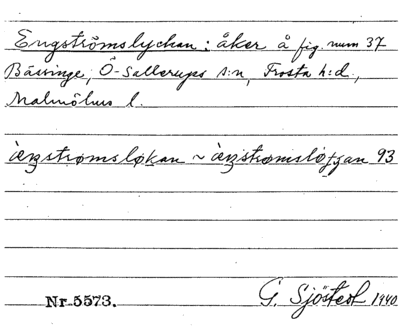 Engströmslyckan: åker å fig. num 37
Bässinge, Ö-Sallerups s:n, Frosta h:d.,
Malmöhus l.
93
Nr 5573. G. Sjöstedt 1940